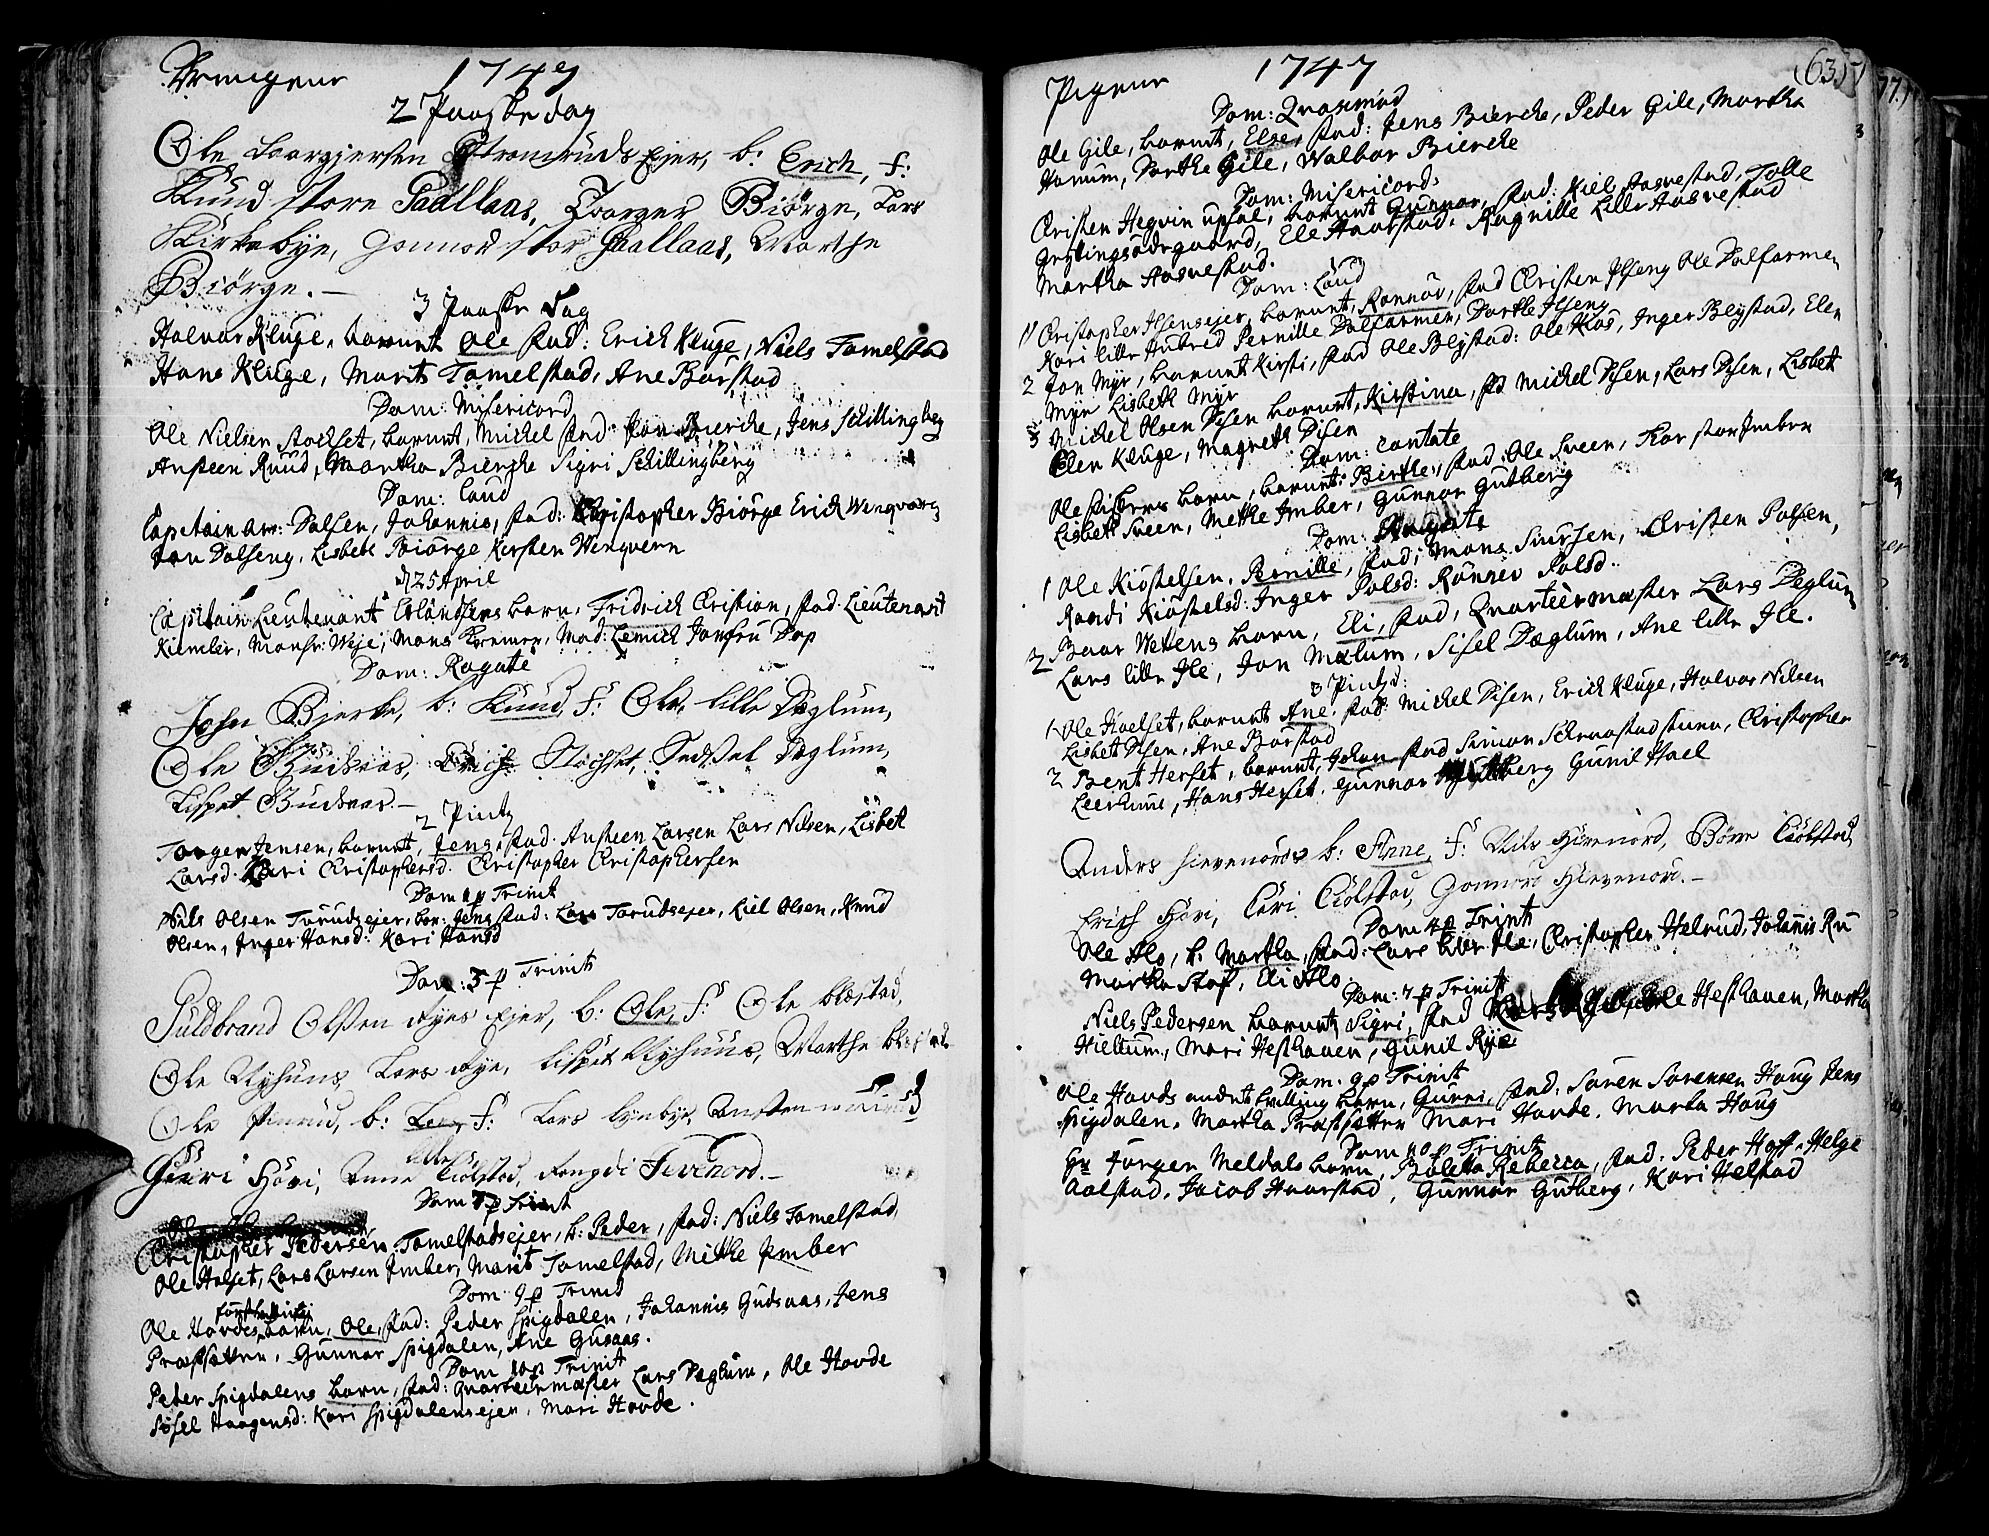 Drengene 1747
2 Paaske dag
Ole Taargiersen Stromruds Ejer, b: Erich, f:
Knud store Saallaas, Taarger Biørge, Lars
Kirkebye, Gonnor stor Saallaas, Marthe
Biørge. —
3 Paaske Dag
Halvor Kluge, barnet Ole fad: Erich Kluge, Niels Tomelstad
Hans Kluge, Marit Tomelstad, Ane Barstad
Dom: Misericord
Ole Nielsen Stockset, barnet, Michel fad: Jon Biercke, Jens Schillingberg
Ansteen Ruud, Martha Biercke Sigri Schillingberg
Dom: Cand
Capitain Dalsen, Johannis, fad: Christopher Biørge Erick
Dalseng, Lisbeth Biørge Kirsten Wenqvern
d 25 April
Capitain Lieutenant barn, Fridrich Christian, fad. Lieutenant
Kiemler, Monsr: Weje, Mons Kremer, Mad: Lemich Jomfru Dop
Dom: Rogate
John Bierke, b: Knud, f: Ole lille Dæglum,
Ole Gudsvas, Erich Stochset, Sidsel Dæglum,
Lisbet Gudsvas. —
2 Pintz
Torger Jensen, barnet, Jens, fad. Ansteen Larsen Lars Nilsen, Lisbet
Larsd. Kari Christophersd. Christopher Christophersen
Dom p Trinit
Niels Olsen Toruds ejer, bar: Jens fad: Lars Torudsejer, Kiel Olsen, Knud
Olsen, Inger Hansd: Kari Hansd
Dom: 3 p Trinit
Guldbrand Olssen Ryes Ejer, b: Ole, f: Ole Blæstad,
Ole Nyhuus, Lars Rye, Lisbet Nyhuus, Marthe Blæstad.
Ole b: Lars f: Lars Lynbye, Ansten
Guri Hövi, Anne lille Ciölstad, Rangdi Sevenord. —
Dom 7 p Trinit
Christopher Pedersen, Tomelstadsejer, b: Peder, fad: Niels Tomelstad,
Ole Holset, Lars Larsen Imber, Marit Tomelstad, Methe Imber
Dom: 9 p Trinit
Ole Hovdes barn, Ole, fad: Peder Spigdalen, Johannis Gudsaas, Jens
Præstsætter, Gunnor Spigdalen, Ane Gusaas.
Dom 10 p Trinit
Peder Spigdalens barn, fad: Qvarteermæster Lars Dæglum, Ole Hovde
Sissel Haagensd: Kari Spigdalensejer, Mari Hovde.
Pigene 1747 (63)
Dom: Qvasimod
Ole Gile, barnet, Else, fad: Jens Biercke, Peder Gile, Martha
Horum, Dorthe Gile, Walbor Biercke
Dom: Misericord:
Christen Hegvin upsal, barnet Gunnor, fad: Kiel Aasvestad, Tolle
Grytingsødegaard, Ele Haarstad, Ragnille Lille Aasvestad
Martha Aasvestad.
Dom: Cand
1) Christopher Ilsengsejer, barnet, Rannov, fad Christen Ilseng Ole Dalfarmen
Kari lille Aubred Pernille Dalfarmen, Dorthe Ilseng
2 Jon Myr, barnet Kirsti, fad Ole Blystad: Ole Aas, Inger Blystad, Elen
Myr Lisbeth Myr
3 Michel Olsen Disen barnet, Kirstina, fad Michel Disen, Lars Disen, Lisbet
Elen Kluge, Magreth Disen
Dom: Cantate
Ole barn, barnet: Birthe, fad: Ole Sveen, Tor stor Imber
Lisbeth Sveen, Methe Imber, Gunnor Gutberg
Dom: Rogate
1 Ole Kiøstelsen, Pernille, fad; Mons Christen Polsen,
Randi Kiøstelsd: Inger Polsd: Rønnev Polsd.
2 Baar Wetens barn, Eli, fad, Qvarteermæster Lars Dæglum
Lars lille Ile, Jon Mælum, Sissel Dæglum, Ane lille Ile.
3 Pintzd:
1 Ole Hoelset, barnet Ane, fad: Michel Disen, Erick Kluge, Halvor Nilsen
Lisbet Disen, Ane Barstad
2 Bent Herset, barnet, Johan fad Simon Christopher
Leerhuus, Hans Herset, Gunnor Gutberg Gunil Hoel
Anders Hievenord b: Anne, f: Niels Hievenord, Børre Ciölstad,
Erich Hövi, Kari Ciölstad, Gonnord Hievenord. —
Dom 4 p Trinit
Ole Alo, b. Martha, fad: Lars Christopher Helrud, Johannis Ru
Martha Stof, Eli Alo
Dom: 7 p Trinit
Niels Pedersen barnet, Sigri, fad Ole Hesthauen, Martha
Hielum, Mari Hesthauen, Gunil Rye
Dom. 9 p Trinit
Ole Hovds andet tvilling barn, Gunri, fad: Søren Sørensen Houg Jens
Spigdalen, Martha Præstsætter Mari Hovde, Marta Houg
Dom 10 p Trinit
Hr Jørgen Meldals barn, Bolette Rebecca, fad: Peder Hoff, Helge
Aalstad, Jacob Haarstad, Gunnor Gutberg, Kari Helstad